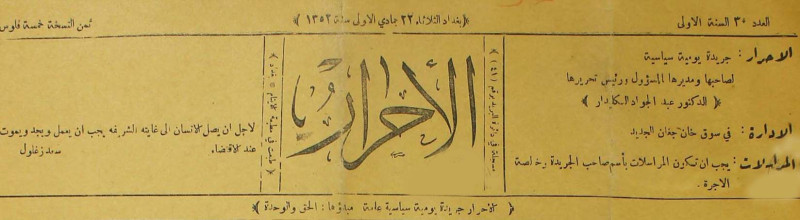 العدد ٣٠ السنة الاولى
﴿ بغداد الثلاثاء ٢٢ جمادي الاولى سنة ١٣٥٢ ﴾
ثمن النسخة خمسة فلوس
الاحرار : جريدة يومية سياسية
لصاحبها ومديرها المسؤول ورئيس تحريرها
﴿ الدكتور عبد الجواد الكليدار ﴾
الادارة : في سوق خان جغان الجديد
المراسلات : يجب ان تكون المراسلات بأسم صاحب الجريدة وخالصة
الاجرة .
مسجلة في دائرة البريد برقم ( ٤١ )
الاحرار
طبعت في مطبعة الايتام بغداد
لاجل ان يصل الانسان الى غايته الشريفه يجب ان يعمل ويجد ويموت
عند الاقتضاء.
سعد زغلول
﴿ الاحرار جريدة يومية سياسية عامة مبدؤها : الحق والوحدة ﴾